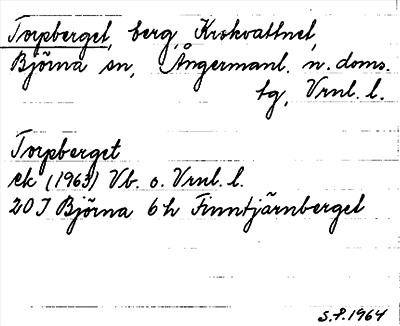 Torpberget, berg, Krokvattnet,
Björna sn, Ångermanl. n. doms.
tg, Vrnl. l.
Torpberget
ek (1963) Vb. o. Vrnl. l.
20 I Björna 6h Finntjärnberget
S.P. 1964